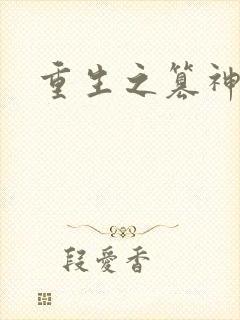 重生之篡神
段愛香